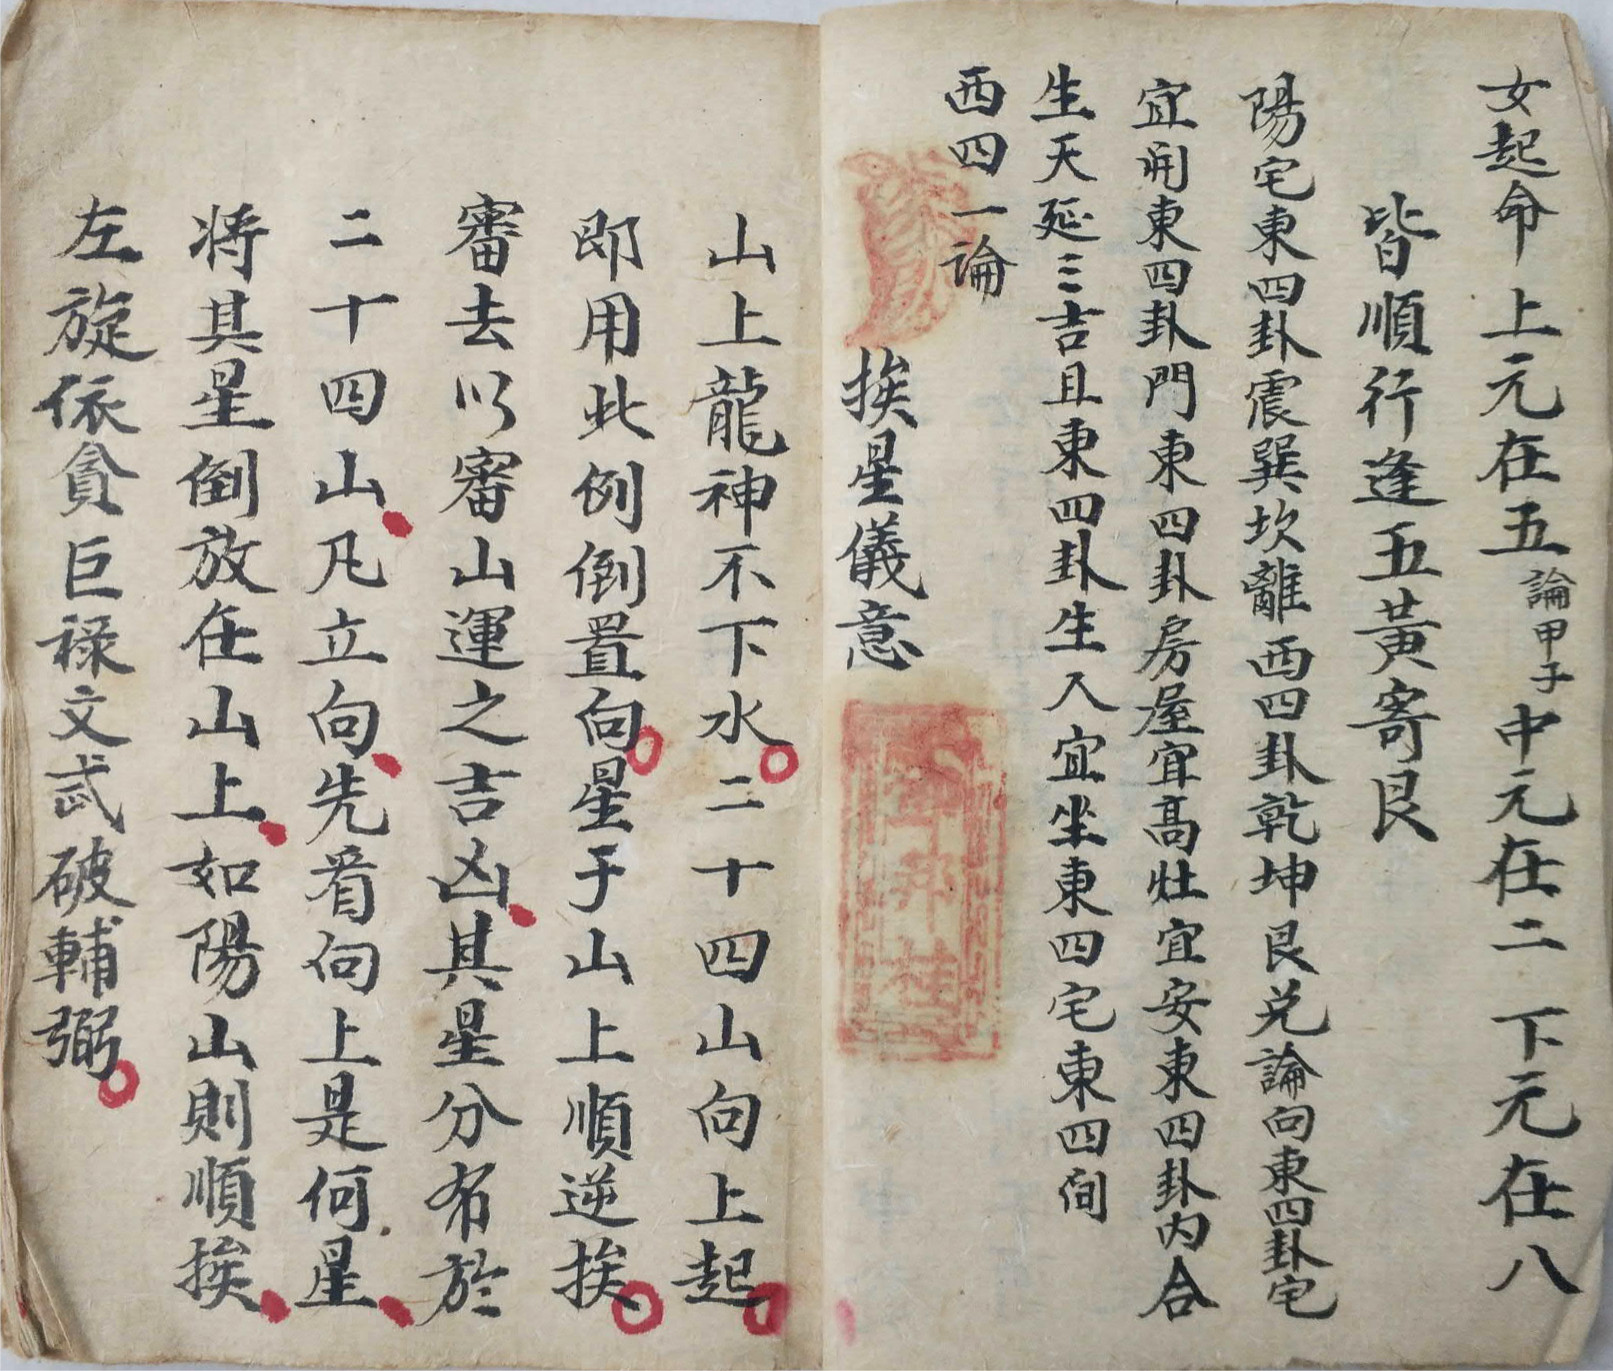 女起命上元在五論甲子中元在二下元在八
皆順行逢五黃寄艮
陽宅東四卦震巽坎離西四卦乾坤艮兌論向東四卦宅
宜開東四卦門東四卦房屋宜高灶宜安東四卦内合
生天延三吉且東四卦生人宜坐東四宅東四间
西四一論
挨星儀意
山上龍神不下水二十四山向上起
即用此例倒置向星于山上順逆挨
審去以審山運之吉凶其星分布於
二十四山凡立向先看向上是何星
将其星倒放在山上如陽山則順挨
左旋依貪巨禄文武破輔弼